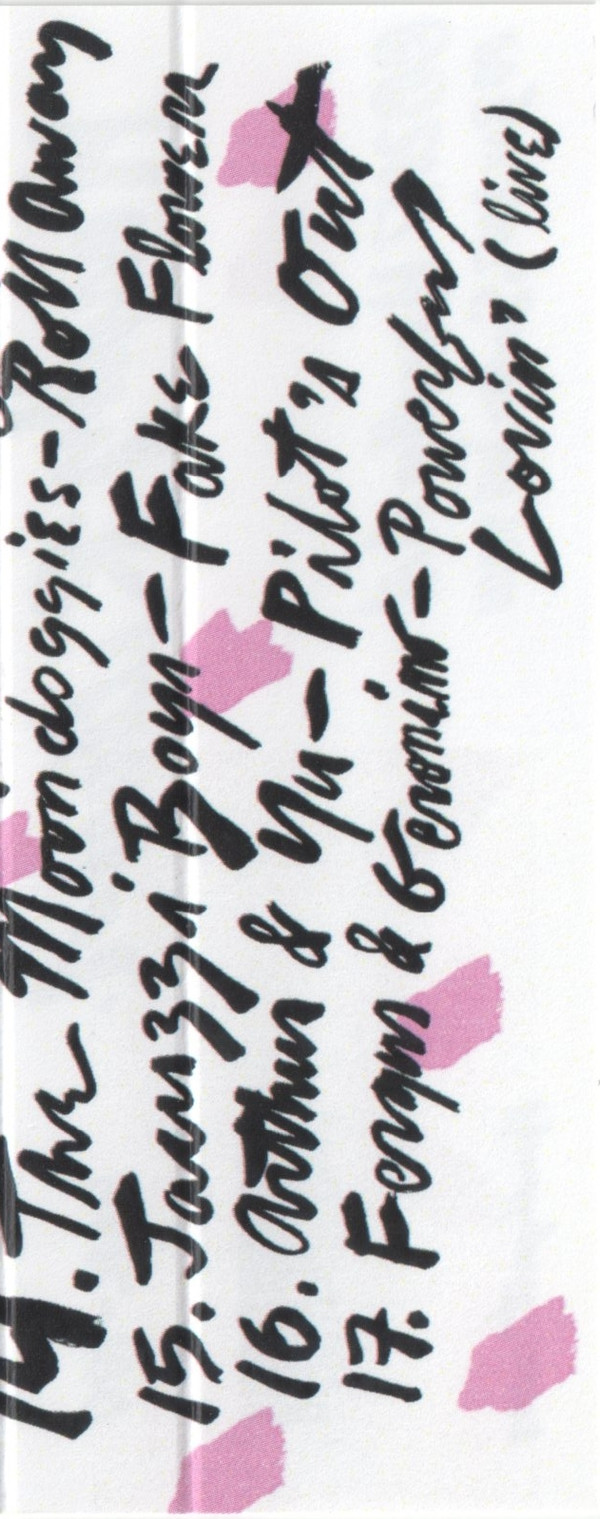 14. The Moondoggies - Roll Away
15. Jacuzzi Boys - Fake Flowers
16. Arthur & Yu - Pilot's Out
17. Fergus & Geronimo - Powerful
Lovin' (live)